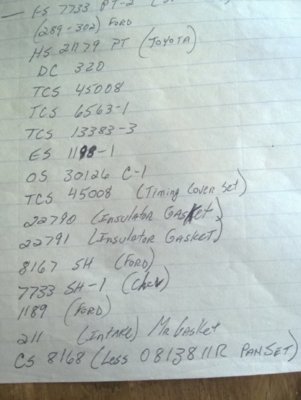 — FS 7733 PT-2
(289-302) FORD
HS 21179 PT (TOYOTA)
DC 320
TCS 45008
TCS 6563-1
TCS 13383-3
ES 1198-1
OS 30126 C-1
TCS 45008 (Timing Cover Set)
22790 (INSULATOR GASKET)
22791 (INSULATOR GASKET)
8167 SH (FORD)
7733 SH-1 (Chev)
1189 (FORD)
211 (INTAKE) Mr. Gasket
CS 8168 (Less 0813811R PAN SET)